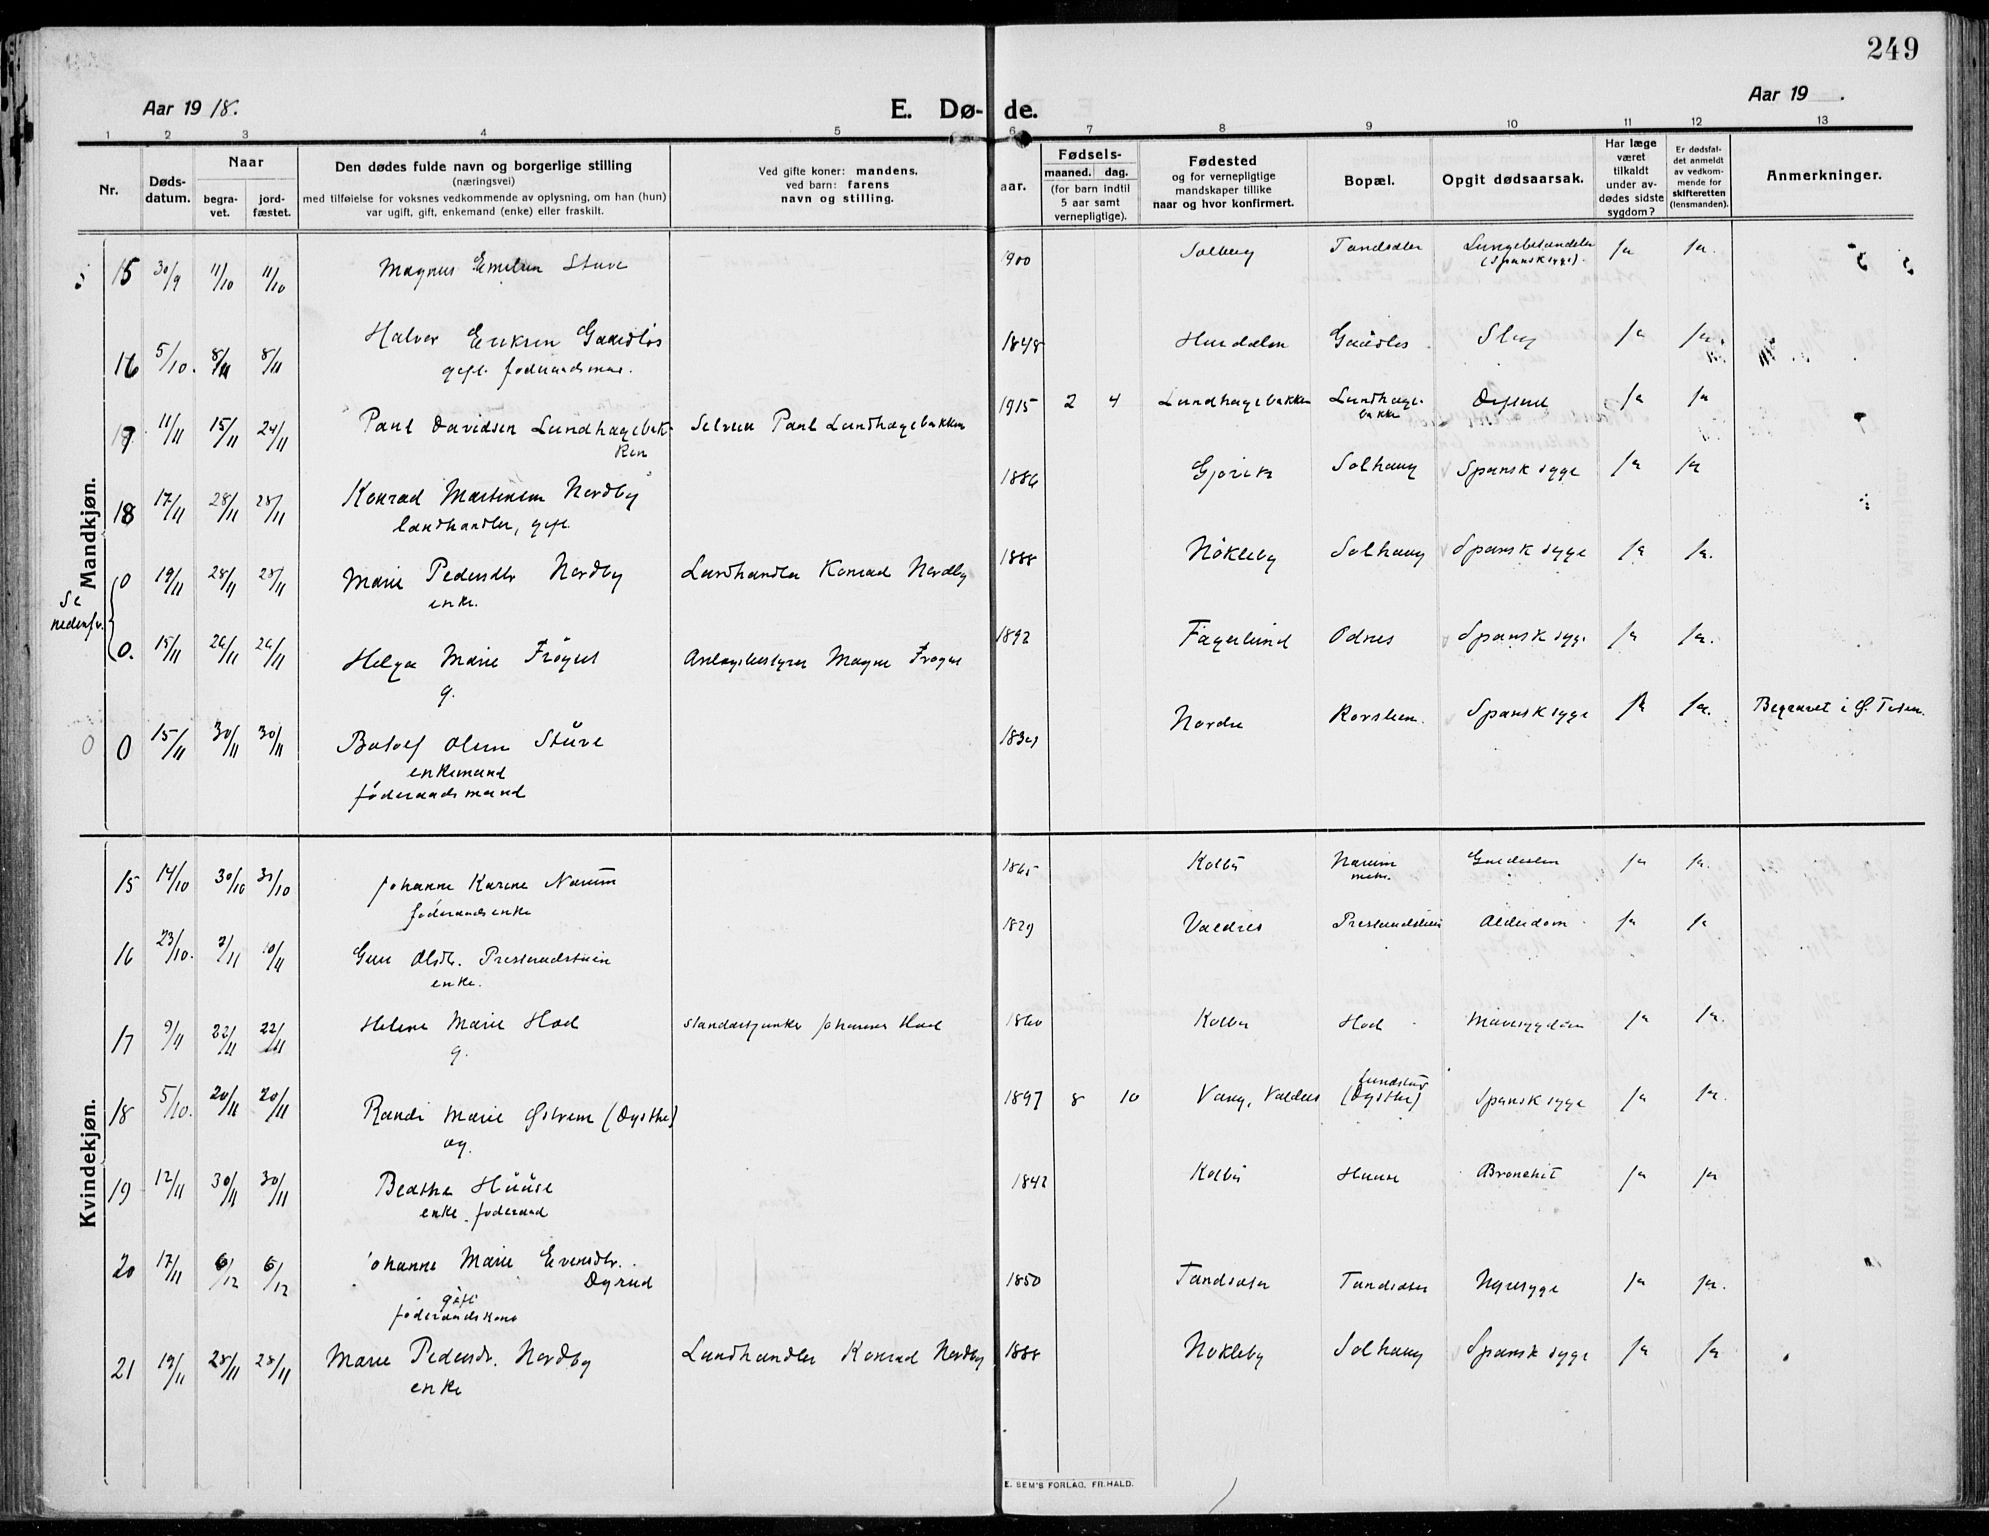 249
Aar 1918.
E. Dø- de.
Aar 19 .
1 2 3 4 5 6 7 8 9 10 11 12 13
Nr.
Døds-
datum.
Naar
begra-
vet.
jord-
fæstet.
Den dødes fulde navn og borgerlige stilling
(næringsvei)
med tilføielse for voksnes vedkommende av oplysning, om han (hun)
var ugift, gift, enkemand (enke) eller fraskilt.
Ved gifte koner: mandens.
ved barn: farens
navn og stilling.
aar.
Fødsels-
maaned. dag.
(for barn indtil
5 aar samt
vernepligtige).
Fødested
og for vernepligtige
mandskaper tillike
naar og hvor konfirmert.
Bopæl.
Opgit dødsaarsak.
Har læge
været
tilkaldt
under av-
dødes sidste
sygdom?
Er dødsfal-
det anmeldt
av vedkom-
mende for
skifteretten
(lensmanden).
Anmerkninger.
Mandkjøn.
15 30/9 11/10 11/10 Magnus Emilsen Stuve 900 Solberg Tandsæter Lungebetændelse ja ja.
(Spansk syge).
16 5/10. 8/11 8/11 Halvor Eriksen Gaardløs 1848 Hurdalen Gaardløs Slag ja ja.
gift. føderaadsmand.
17 11/11 15/11 24/11 Paul Davidsen Lundhagebak- Selveier Paul Lundhagebakken 1915 2 4 Lundhagebakken Lundhage- ja ja
ken
bakken
18 17/11 28/11 28/11 Konrad Martinsen Nordby 1886 Gjøvik Solhaug Spansk syge ja ja
landhandler, gift.
Se
nedenfor.
0 19/11 28/11 28/11 Marie Pedersdtr Nordby Landhandler Konrad Nordby 1888 Nökleby Solhaug Spansk syge ja ja.
enke.
0. 15/11 26/11 26/11 Helga Marie Frøyse Anlægsbestyrer Magne Frøyse 1892 Fagerlund Odnes Spansk syge ja ja.
g.
0 0 15/11 30/11 30/11 Botolf Olsen Stuve Nordre Spansk syge ja ja. Begravet i Ø. Toten.
enkemand
føderaadsmand
Kvindekjøn.
15 14/10 30/10 30/10 Johanne Karine Narum 1865 Kolbu Narum ja ja.
føderaadsenke
16 23/10. 7/11 10/11 Guri Olsdtr. Presterudstuen 1829 Valdres Presterudstuen Alderdom ja ja
enke.
17 9/11 22/11 22/11 Helene Marie Hoel Standartjunker Johannes Hoel 1860 Kolbu Hoel Mavesygdom ja ja.
g.
18 5/10. 20/11 20/11 Randi Marie Østrem (Dysthe) 1897 8 10 Vang, Valdres (Dysthe) Spansk syge ja ja.
ug.
19 12/11 30/11 30/11 Beathe Huuse 1842 Kolbu Huuse Bronchit ja ja
enke. føderaad
20 17/11 6/12 6/12 Johanne Marie Evensdtr. 1850 Tandsæter Tandsæter Nyresyge ja ja.
Dyrud
gift
føderaadskone
21 19/11 28/11 28/11 Marie Pedersdtr. Nordby Landhandler Konrad Nordby 1888 Nökleby Solhaug Spansk syge ja ja
enke
E. SEM'S FORLAG, FR.HALD.